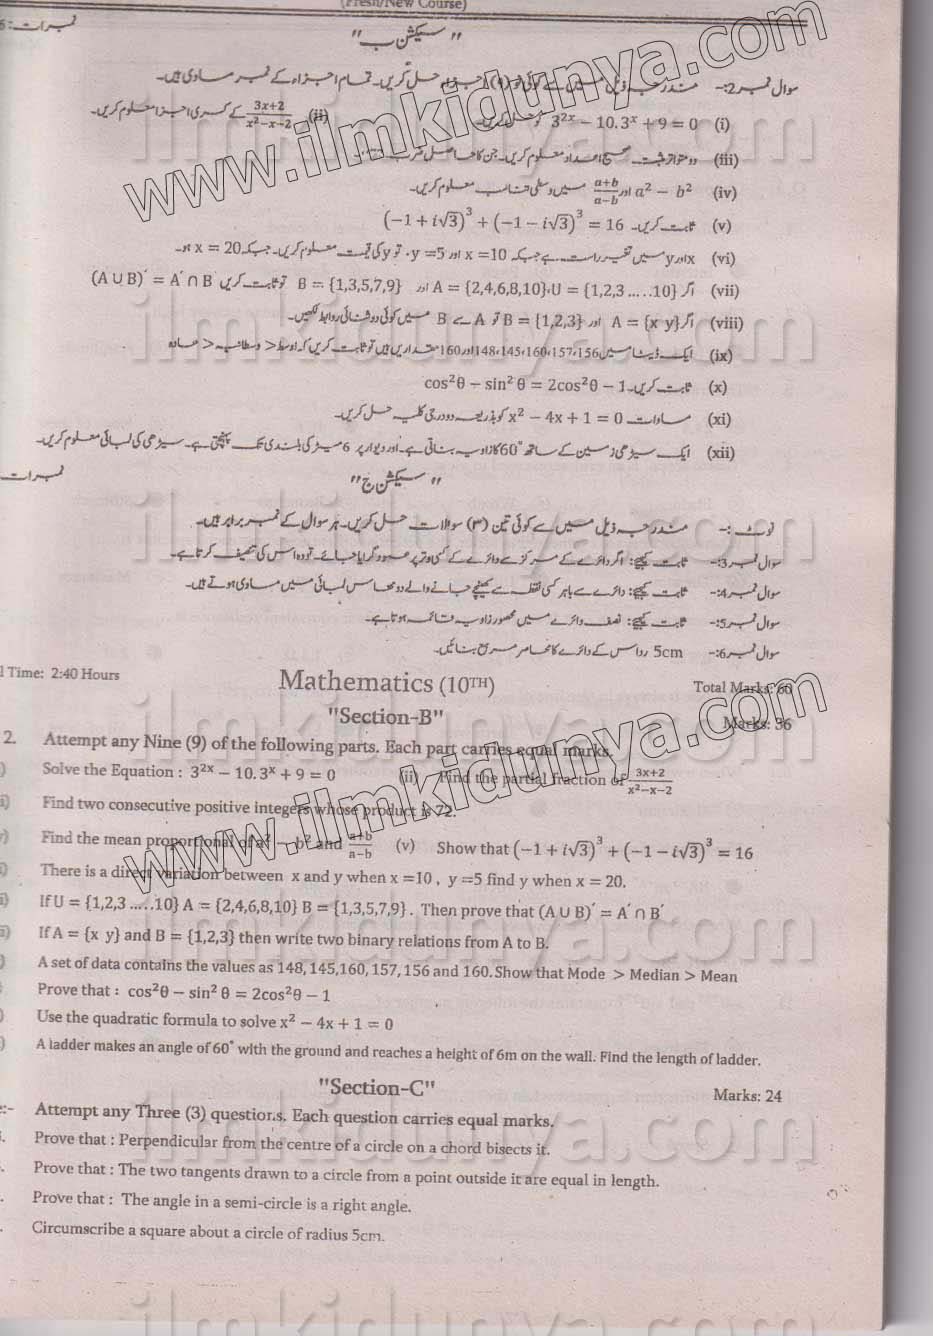 (Fresh/New Course)
"سیکشن ب"
سوال نمبر 2:- مندرجہ ذیل میں سے کوئی نو (۹) اجزاء حل کریں۔ تمام اجزاء کے نمبر مساوی ہیں۔
(i) 3^{2x} − 10.3^x + 9 = 0 کو حل کریں۔ (ii) \frac{3x+2}{x²−x−2} کے کسری اجزا معلوم کریں۔
(iii) دو متواتر مثبت صحیح اعداد معلوم کریں۔ جن کا حاصل ضرب
(iv) a² − b² اور \frac{a+b}{a−b} میں وسطی تناسب معلوم کریں۔
(v) ثابت کریں۔ (−1 + i√3)³ + (−1 − i√3)³ = 16
(vi) x اور y میں تغیر راست ہے جبکہ x = 10 اور y = 5، تو y کی قیمت معلوم کریں۔ جبکہ x = 20 ہو۔
(vii) اگر U = {1,2,3 .....10}، A = {2,4,6,8,10} اور B = {1,3,5,7,9} تو ثابت کریں (A ∪ B)′ = A′ ∩ B′
(viii) اگر A = {x y} اور B = {1,2,3} تو A سے B میں کوئی دو ثنائی روابط لکھیں۔
(ix) ایک ڈیٹا میں 156، 157، 160، 145، 148 اور 160 مقداریں ہیں تو ثابت کریں کہ اوسط < وسطانیہ < عادہ
(x) ثابت کریں۔ cos²θ − sin²θ = 2cos²θ − 1
(xi) مساوات x² − 4x + 1 = 0 کو بذریعہ دو درجی کلیہ حل کریں۔
(xii) ایک سیڑھی زمین کے ساتھ 60° کا زاویہ بناتی ہے۔ اور دیوار پر 6 میٹر کی بلندی تک پہنچتی ہے۔ سیڑھی کی لمبائی معلوم کریں۔
"سیکشن ج"
نوٹ :- مندرجہ ذیل میں سے کوئی تین (۳) سوالات حل کریں۔ ہر سوال کے نمبر برابر ہیں۔
سوال نمبر 3:- ثابت کیجئے: اگر دائرے کے مرکز سے دائرے کے کسی وتر پر عمود گرایا جائے۔ تو وہ اس کی تنصیف کرتا ہے۔
سوال نمبر 4:- ثابت کیجئے: دائرے سے باہر کسی نقطہ سے کھینچے جانے والے دو مماس لمبائی میں مساوی ہوتے ہیں۔
سوال نمبر 5:- ثابت کیجئے: نصف دائرے میں محصور زاویہ قائمہ ہوتا ہے۔
سوال نمبر 6:- 5cm رداس کے دائرے کا محاصر مربع بنائیں۔
Time: 2:40 Hours Mathematics (10TH) Total Marks: 60
"Section-B" Marks: 36
2. Attempt any Nine (9) of the following parts. Each part carries equal marks.
Solve the Equation : 3^{2x} − 10. 3^x + 9 = 0 (ii) Find the partial fraction of \frac{3x+2}{x²−x−2}
Find two consecutive positive integers whose product is 72.
Find the mean proportional of a² − b² and \frac{a+b}{a−b} (v) Show that (−1 + i√3)³ + (−1 − i√3)³ = 16
There is a direct variation between x and y when x =10 , y =5 find y when x = 20.
If U = {1,2,3 .....10} A = {2,4,6,8,10} B = {1,3,5,7,9} . Then prove that (A ∪ B)′ = A′ ∩ B′
If A = {x y} and B = {1,2,3} then write two binary relations from A to B.
A set of data contains the values as 148, 145,160, 157, 156 and 160. Show that Mode > Median > Mean
Prove that : cos²θ − sin²θ = 2cos²θ − 1
Use the quadratic formula to solve x² − 4x + 1 = 0
A ladder makes an angle of 60° with the ground and reaches a height of 6m on the wall. Find the length of ladder.
"Section-C" Marks: 24
Attempt any Three (3) questions. Each question carries equal marks.
Prove that : Perpendicular from the centre of a circle on a chord bisects it.
Prove that : The two tangents drawn to a circle from a point outside it are equal in length.
Prove that : The angle in a semi-circle is a right angle.
Circumscribe a square about a circle of radius 5cm.
www.ilmkidunya.com
www.ilmkidunya.com
ilmkidunya.com